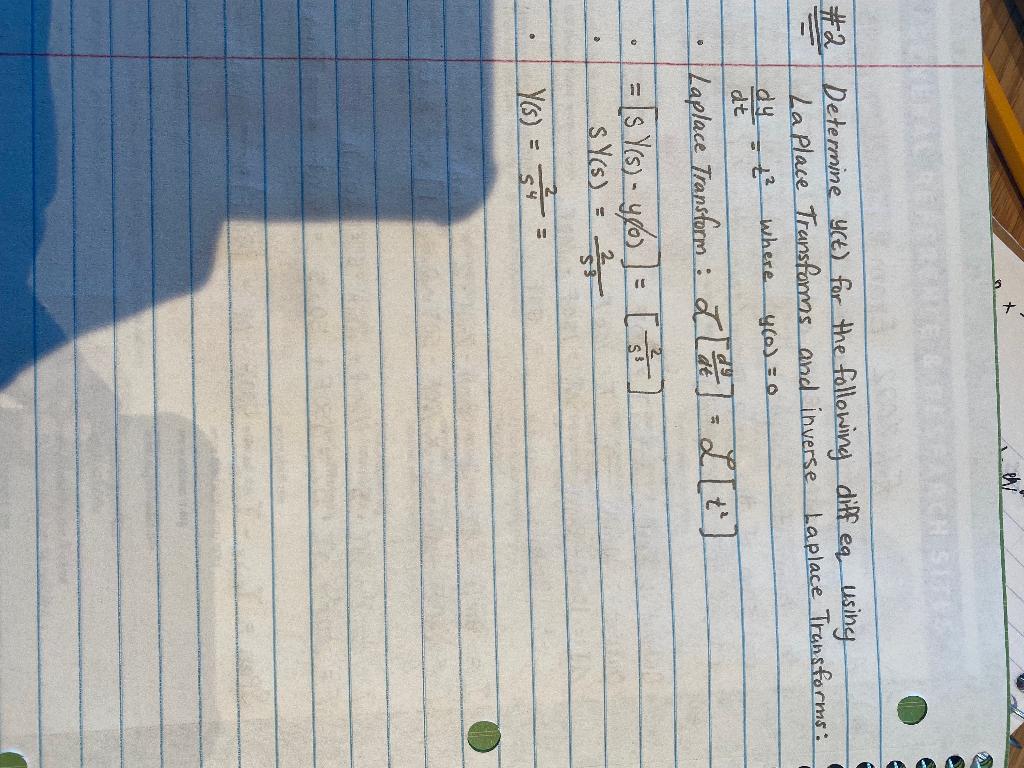 #2 Determine y(t) for the following diff eq using
Laplace Transforms and inverse Laplace Transforms:
dy/dt = t² where y(0) = 0
• Laplace Transform: ℒ[dy/dt] = ℒ[t²]
• = [s Y(s) - y(0)] = [2/s³]
• s Y(s) = 2/s³
• Y(s) = 2/s⁴ =